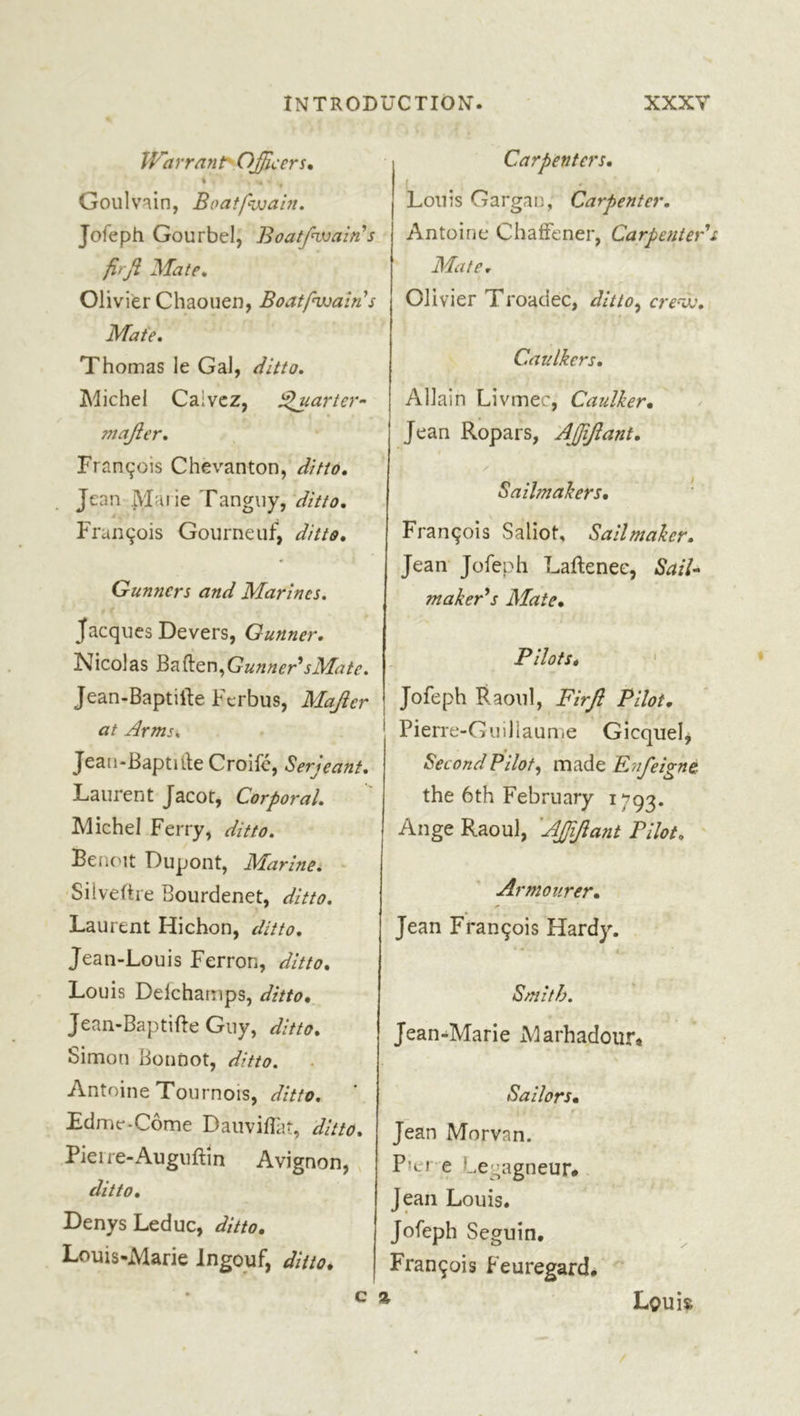 INTRODUCTION. XXXV
Warrant Officers.
Goulvain, Boatſwain.
Joſeph Gourbel, Boatſwain's
firſt Mate.
Olivier Chaouen, Boatſwain's
Mate.
Thomas le Gal, ditto.
Michel Calvez, Quarter-
maſter.
François Chevanton, ditto.
Jean Marie Tanguy, ditto.
François Gourneuf, ditto.
Gunners and Marines.
Jacques Devers, Gunner.
Nicolas Baſten, Gunner'sMate.
Jean-Baptiſte Ferbus, Maſter
at Arms.
Jean-Baptiſte Croiſé, Serjeant.
Laurent Jacot, Corporal.
Michel Ferry, ditto.
Benoit Dupont, Marine.
Silveſtre Bourdenet, ditto.
Laurent Hichon, ditto.
Jean-Louis Ferron, ditto.
Louis Deſchamps, ditto.
Jean-Baptiſte Guy, ditto.
Simon Bonnot, ditto.
Antoine Tournois, ditto.
Edme-Côme Dauviſſat, ditto.
Pierre-Auguſtin Avignon,
ditto.
Denys Leduc, ditto.
Louis-Marie Ingouf, ditto.
Carpenters.
Louis Gargan, Carpenter.
Antoine Chaffener, Carpenter's
Mate.
Olivier Troadec, ditto, crew.
Caulkers.
Allain Livmec, Caulker.
Jean Ropars, Aſſiſtant.
Sailmakers.
François Saliot, Sailmaker.
Jean Joſeph Laſtenec, Sail-
maker's Mate.
Pilots.
Joſeph Raoul, Firſt Pilot.
Pierre-Guillaume Gicquel,
Second Pilot, made Enſeigne
the 6th February 1793.
Ange Raoul, Aſſiſtant Pilot.
Armourer.
Jean François Hardy.
Smith.
Jean-Marie Marhadour.
Sailors.
Jean Morvan.
Pierre Legagneur.
Jean Louis.
Joſeph Seguin.
François Feuregard.
c 2 Louis